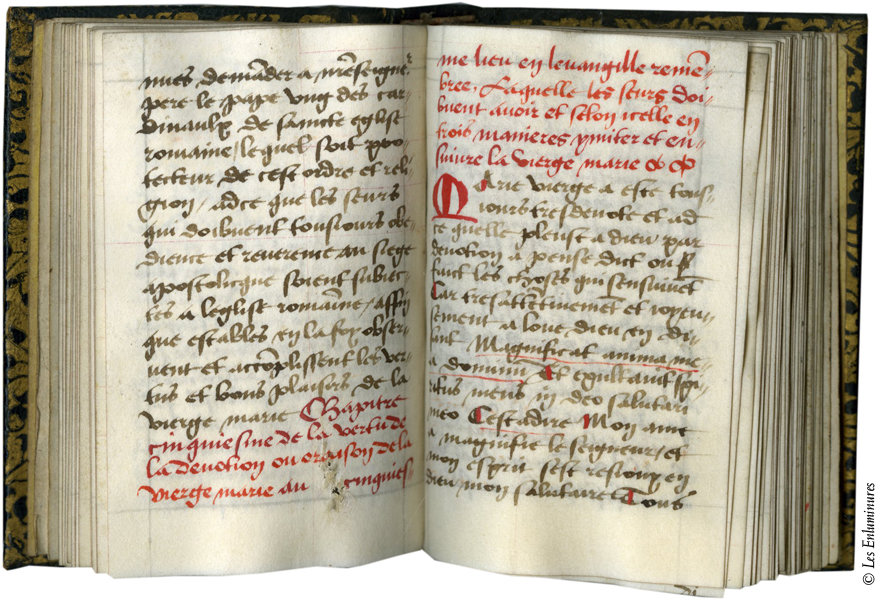 nues demāder a nr̄eseigner
pere le pape vng des car-
dinaulx de saincte eglise
romaine / lequel soit pro-
tecteur de cest ordre et reli-
gion / adce que les seurs
qui doibuent tousiours obe-
dience et reuerence au siege
apostolicque soient subiec-
tes a leglise romaīne / affin
que estables en la foy obser-
uent et accōplissent les ver-
tus et bons plaisirs de la
vierge marie Chapitre
cinquiesme de la vertu de
la deuotion ou oraison de la
vierge marie au cinquies-
me lieu en leuangille remē-
bree. Laquelle les seurs doi-
buent auoir et selon icelle en
trois manieres ymiter et en-
suiure la vierge marie
Marie vierge a este tous-
iours tresdeuote et ad
ce quelle pleust a dieu par
deuotion a pense dict ou
faict les choses qui sensuiuēt
Car tresattētiuemēt et ioyeu-
sement a loue dieu en di-
sant Magnificat anima me-
a dominū Et exultauit spi-
ritus meus in deo salutari
meo Cest adire Mon ame
a magnifie le seigneur / et
mon esprit sest resiouy en
dieu mon salutaire Tous
© Les Enluminures